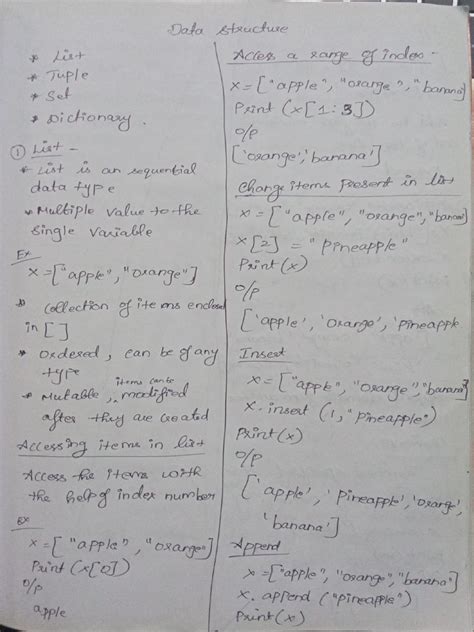 Data Structure
* List
* Tuple
* Set
* Dictionary.
① List -
* List is an sequential
data type
* Multiple value to the
single variable
Ex
x=["apple","orange"]
* collection of items enclosed
in [ ]
* Ordered, can be of any
type
* Mutable, items can be modified
after they are created
Accessing items in list
Access the items with
the help of index number
Ex
x=["apple","orange"]
Print(x[0])
o/p
apple
Access a range of index -
x=["apple","orange","banana"]
Print (x[1:3])
o/p
['orange','banana']
Change items Present in list
x=["apple","orange","banana"]
x[2] = "Pineapple"
Print(x)
o/p
['apple','orange','Pineapple
Insert
x=["apple","orange","banana"]
x.insert (1,"Pineapple")
Print(x)
o/p
['apple','Pineapple','orange',
'banana']
Append
x=["apple","orange","banana"]
x.append ("Pineapple")
Print(x)